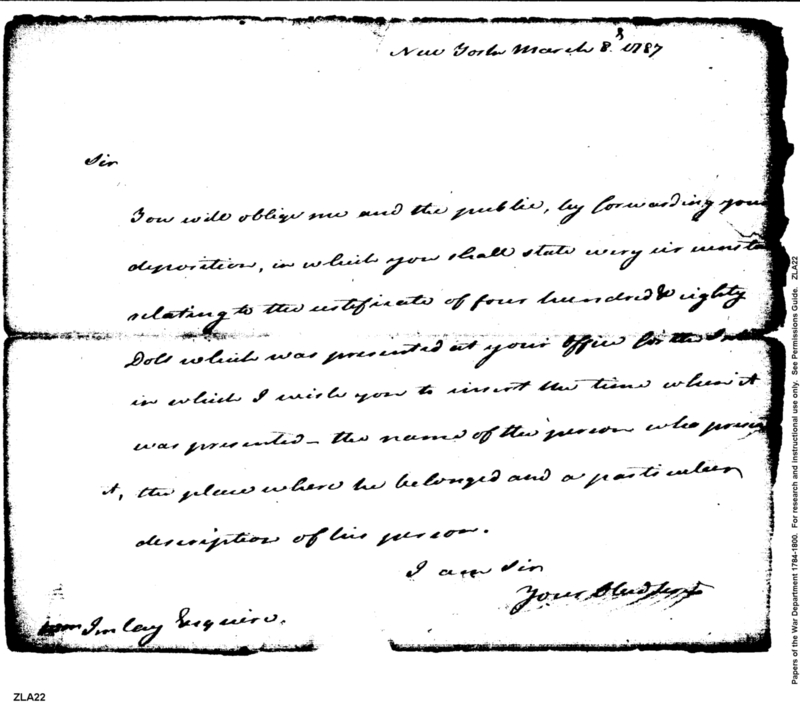 New York March 8th 1787
Sir
You will oblige me and the public, by forwarding your
deposition, in which you shall state every circumsta
relating to the certificate of four hundred & eighty
Dols which was presented at your office for the Inte
in which I wish you to insert the time when it
was presented – the name of the person who presen
it, the place where he belonged and a particular
description of his person.
I am Sir
Your Obed Servt
Wm Imlay Esquire.
Papers of the War Department 1784-1800. For research and instructional use only. See Permissions Guide. ZLA22
ZLA22